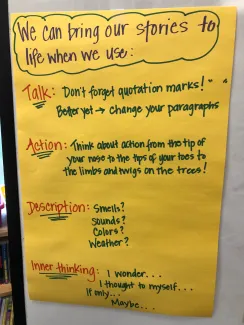 We can bring our stories to
life when we use:
Talk: Don't forget quotation marks! " "
Better yet → change your paragraphs
Action: Think about action from the tip of
your nose to the tips of your toes to
the limbs and twigs on the trees!
Description: Smells?
Sounds?
Colors?
Weather?
Inner thinking: I wonder...
I thought to myself...
If only...
Maybe...